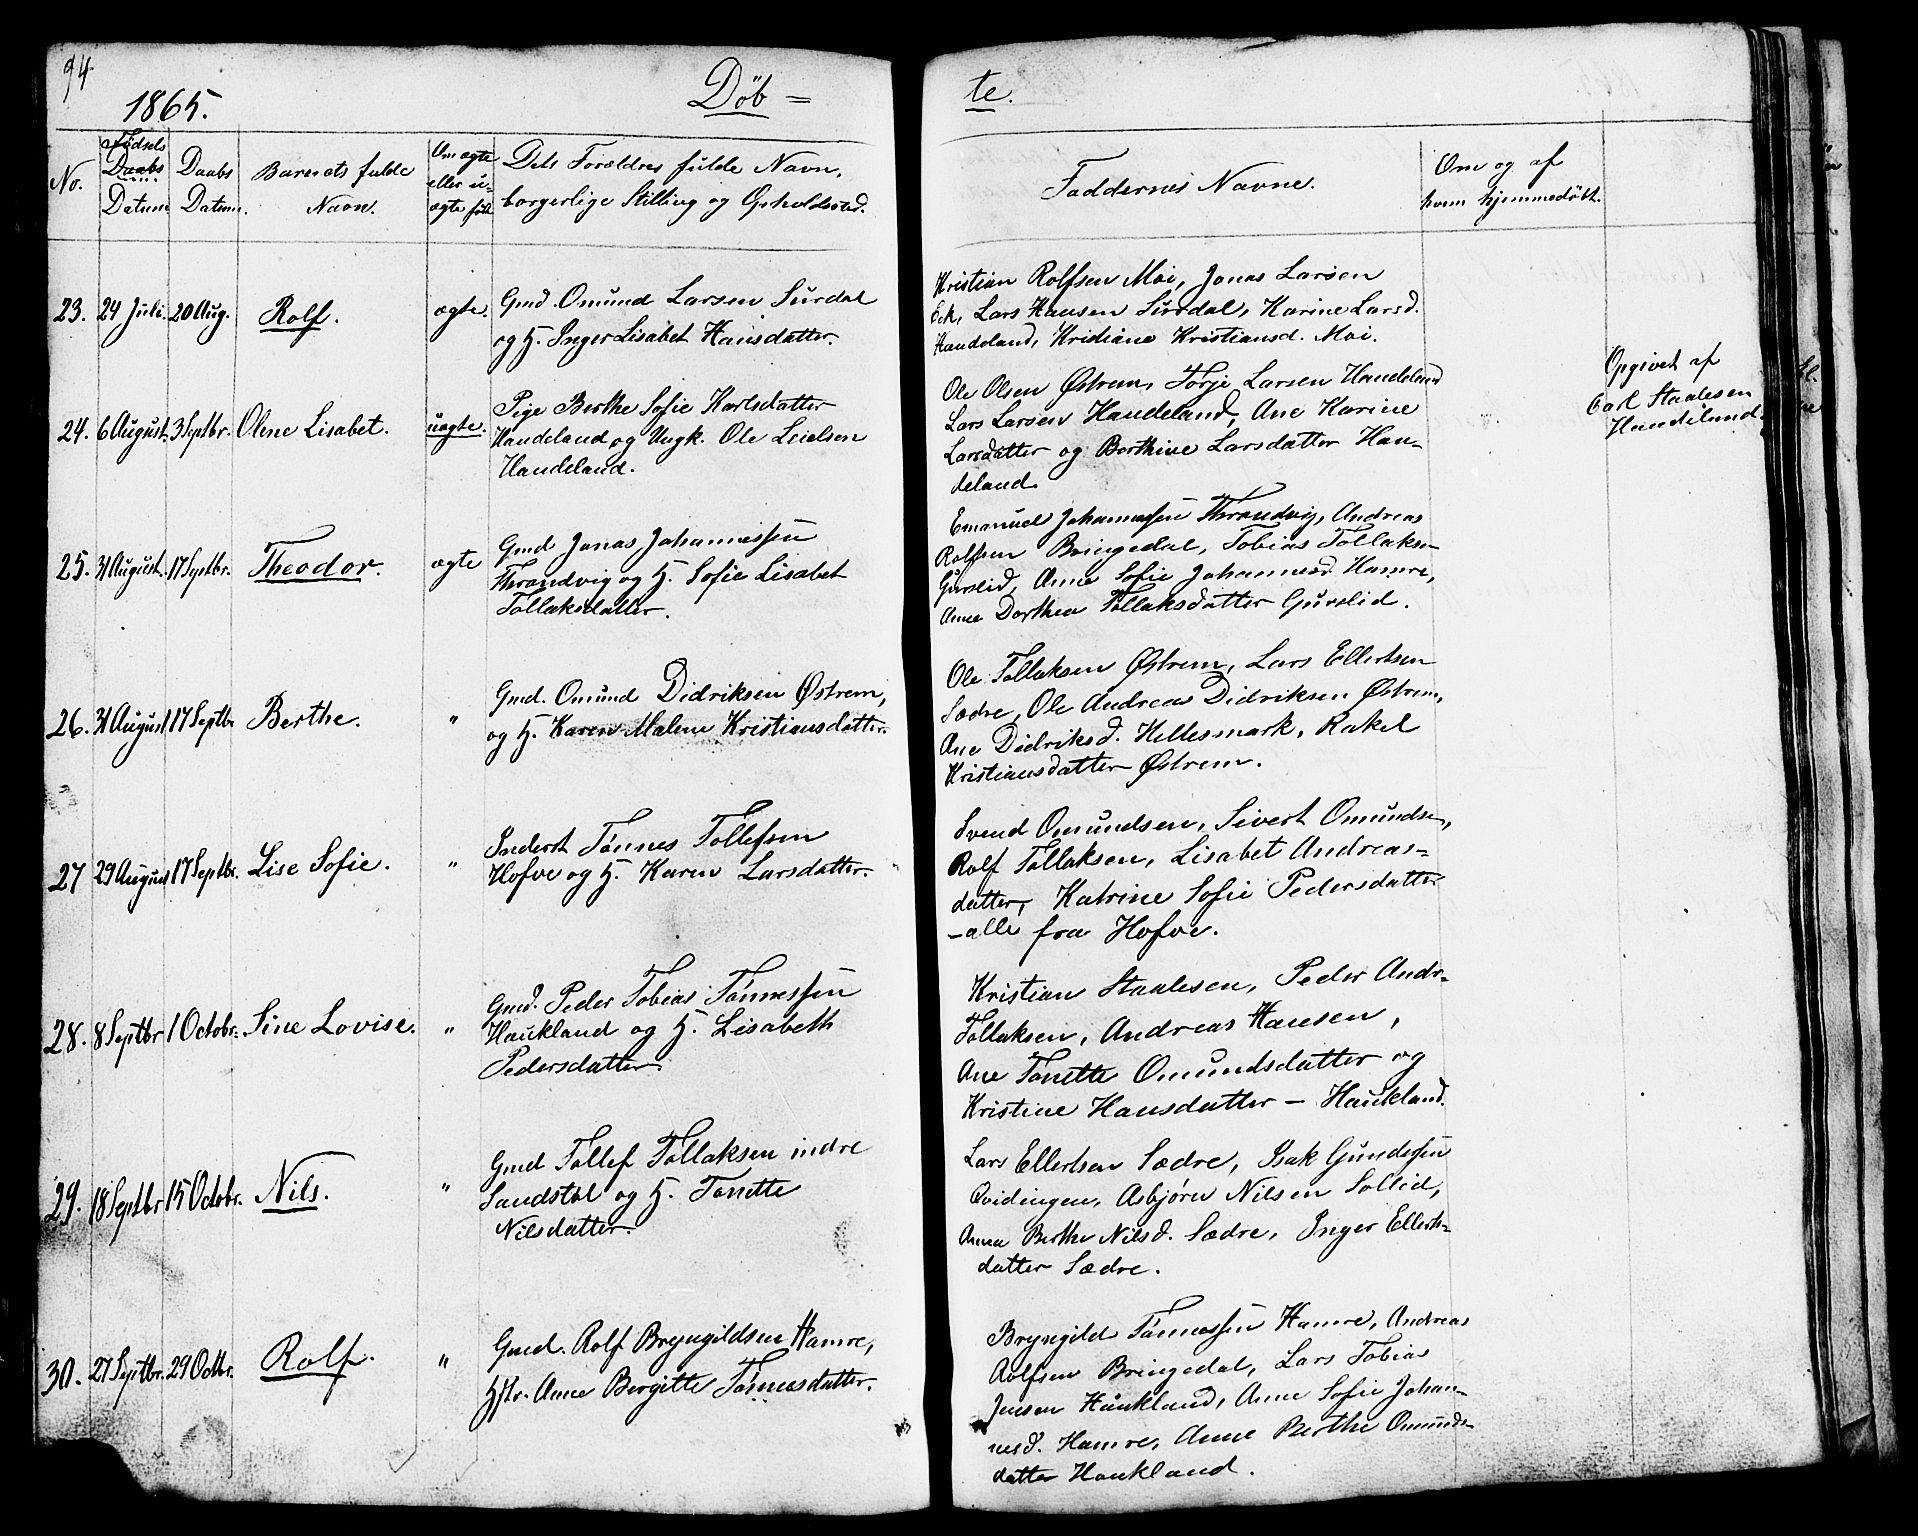 94
1865.
Døb =
te.
No.
Fødsels
Daabs
Datum
Daabs
Datum.
Barnets fulde
Navn.
Om ægte
eller u-
ægte født
Dets Forældres fulde Navn,
borgerlige Stilling og Opholdssted.
Faddernes Navne.
Om og af
hvem hjemmedøbt.
23. 24 Juli. 20 Aug. Rolf. ægte.
Gmd. Omund Larsen Surdal
og H. Inger Lisabet Hansdatter.
Kristian Rolfsen Moi, Jonas Larsen
Eek, Lars Hansen Surdal, Karine Larsd.
Handeland, Kristiane Kristiansd. Moi.
24. 6 August. 3 Septbr. Olene Lisabet. uægte.
Pige Berthe Sofie Karlsdatter
Handeland og Ungk. Ole Leielsen
Handeland.
Ole Olsen Østrem, Torje Larsen Handeland
Lars Larsen Handeland, Ane Karine
Larsdatter og Berthine Larsdatter Han-
deland.
Opgivet af
Carl Staalesen
Handeland.
25. 31 August. 17 Septbr. Theodor. ægte
Gmd Jonas Johannessen
Thrandvig og H. Sofie Lisabet
Tollaksdatter.
Emanuel Johannessen Thrandvig, Andreas
Rolfsen Bringedal, Tobias Tollaksen
Gurslid, Anne Sofie Johannesd. Hamre,
Anne Dorthea Tollaksdatter Gurslid.
26. 31 August 17 Septbr Berthe. "
Gmd. Omund Didriksen Østrem,
og H. Karen Malene Kristiansdatter.
Ole Tollaksen Østrem, Lars Ellertsen
Sædre, Ole Andreas Didriksen Østrem,
Ane Didriksd. Hellesmark, Rakel
Kristiansdatter Østrem.
27 29 August 17 Septbr. Lise Sofie. "
Inderst Tønnes Tollefsen
Hofve og H. Karen Larsdatter.
Svend Omundsen, Sivert Omundsen,
Rolf Tollaksen, Lisabet Andreas-
datter, Katrine Sofie Pedersdatter
- alle fra Hofve.
28. 8 Septbr 1 Octobr. Sine Lovise. "
Gmd. Peder Tobias Tønnessen
Haukland og H. Lisabeth
Pedersdatter.
Kristian Staalesen, Peder Andr.
Tollaksen, Andreas Hansen,
Ane Tonette Omundsdatter og
Kristine Hansdatter - Haukland.
29. 18 Septbr 15 Octobr. Nils. "
Gmd Tollef Tollaksen indre
Sandstøl og H. Tonette
Nilsdatter.
Lars Ellertsen Sædre, Isak Gundersen
Qvidingen, Asbjørn Nilsen Sollid,
Anna Berthe Nilsd. Sædre, Inger Ellerts-
datter Sædre.
30. 27 Septbr. 29 Octbr. Rolf. "
Gmd. Rolf Bryngildsen Hamre,
Hstr. Anne Bergitte Tønnesdatter.
Bryngild Tønnessen Hamre, Andreas
Rolfsen Bringedal, Lars Tobias
Jensen Haukland, Anne Sofie Johan-
nesd. Hamre, Anne Berthe Omunds-
datter Haukland.